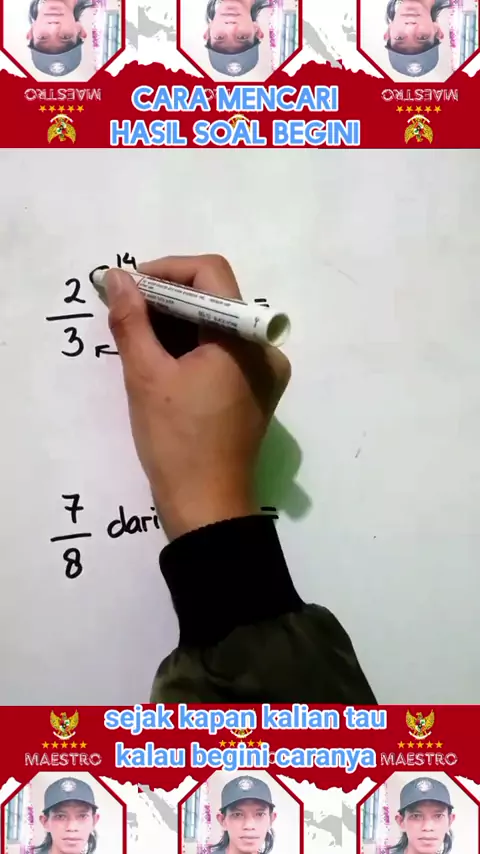 MAESTRO
MAESTRO
CARA MENCARI
HASIL SOAL BEGINI
14
2
3
=
7
8
dari
=
sejak kapan kalian tau
kalau begini caranya
MAESTRO
MAESTRO
MAESTRO